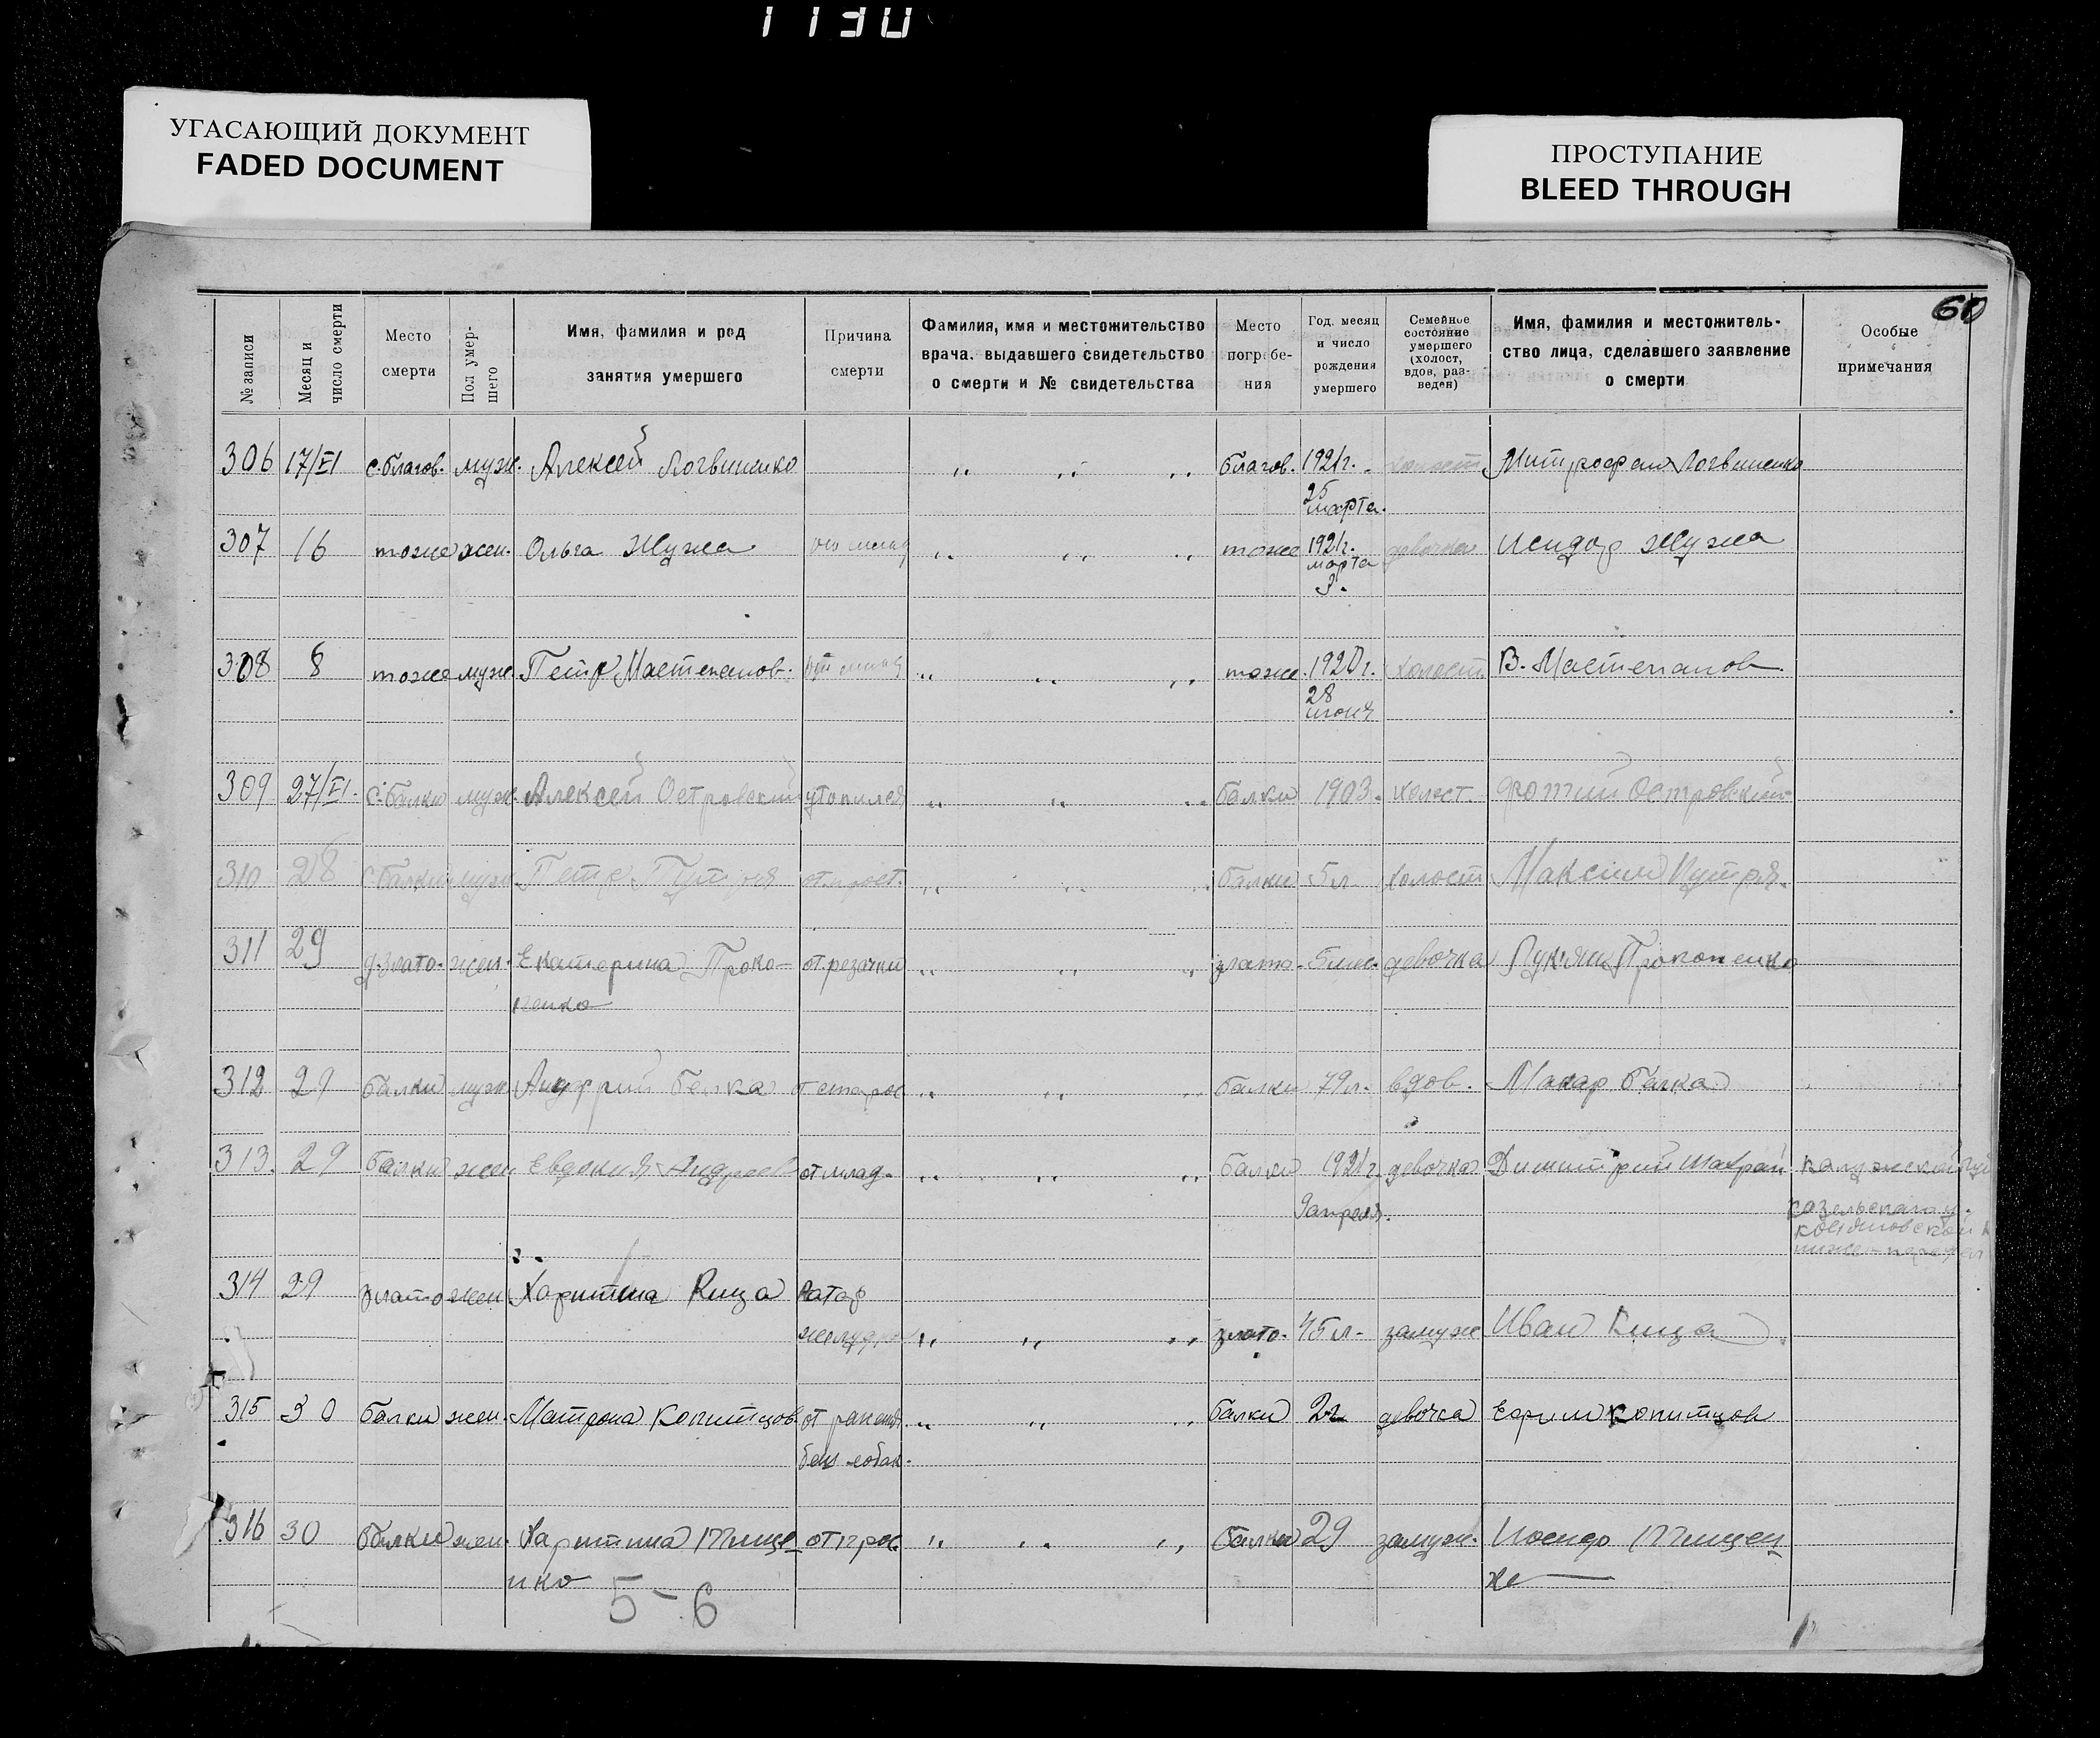 1130
УГАСАЮЩИЙ ДОКУМЕНТ
FADED DOCUMENT
ПРОСТУПАНИЕ
BLEED THROUGH
60
№ записи
Месяц и число смерти
Место смерти
Пол умершего
Имя, фамилия и род занятия умершего
Причина смерти
Фамилия, имя и местожительство врача, выдавшего свидетельство о смерти и № свидетельства
Место погребения
Год, месяц и число рождения умершего
Семейное состояние умершего (холост, вдов, разведен)
Имя, фамилия и местожительство лица, сделавшего заявление о смерти
Особые примечания
306 17/VI с. благов. муж. Алексей Логвиненко " " " благов. 1921г. холост Митрофан Логвиненко
25 марта.
307 16 тоже жен. Ольга Жужа " " " тоже 1921г. девочка Исидор Жужа
марта
3.
308 8 тоже муж. Петр Мастепанов " " " тоже 1920г. холост В. Мастепанов
28
июня
309 27/VI с. балки муж. Алексей Островский утопился " " " балки 1903. холост Фотий Островский
310 28 с. балки муж Петр Путря от прост. " " " балки 5л. холост Максим Путря.
311 29 д. злато. жен. Екатерина Проко- от резачки " " " злато. девочка Лукьян Прокопенко
пенко
312 29 балки муж Андрий Балка от старос " " " балки 79л. вдов. Макар Балка
313. 29 балки жен Евдокия Андреев от млад. " " " балки 1921г. девочка Димитрий
9 апреля. козельскаго у.
314 29 злато жен Харитина Кица Катар
желудка " " " злато. 45л. замуж Иван Кица
315 30 балки жен. Матрона Копитцов " " " балки 2г девочка Ефрим Копитцов
316 30 балки жен. Харитина Тище- " " " балки 29 замуж. Тищен-
нко
5-6